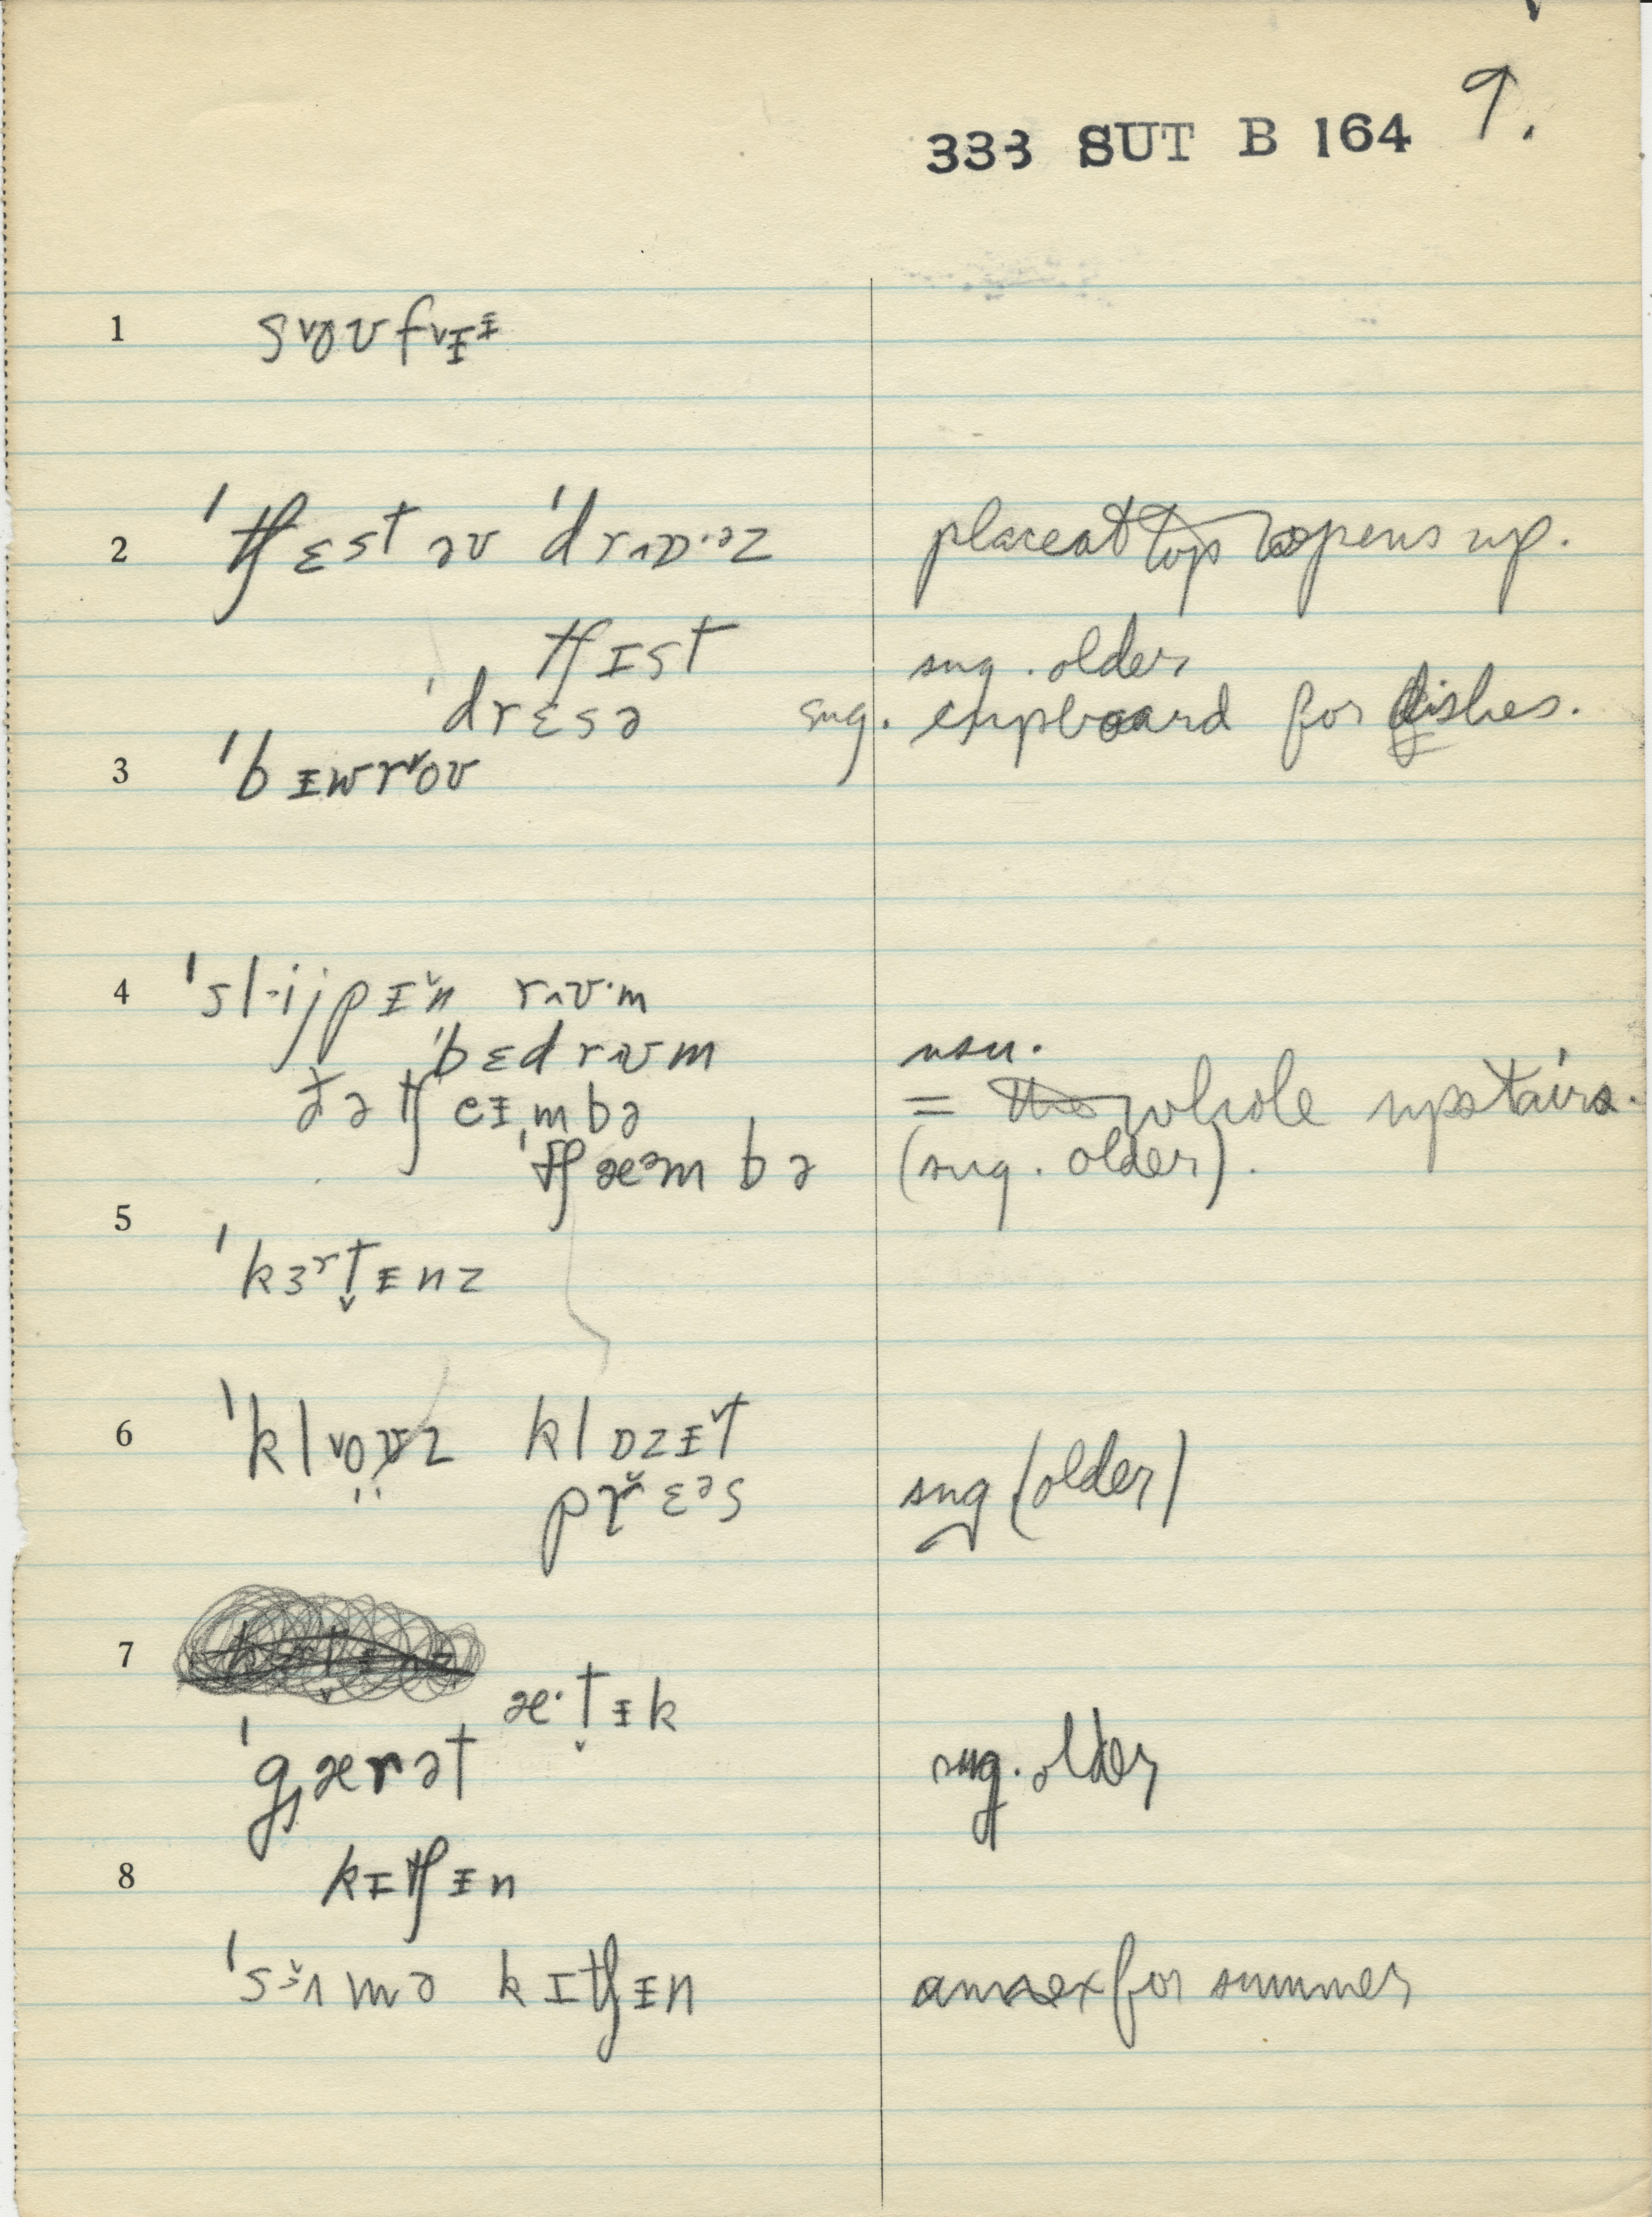 333 SUT B 164 9.
1 sᵛoʊfᵛɪᵻ
2 ˈtʃɛst əv ˈdrʌɒ·əz place at top opens up.
tʃɪst sug. older
ˈdrɛsə sug. cupboard for dishes.
3 ˈbᵻwrᵛoʊ
4 ˈsl·ijpᵻ̌n rʌʊ·m
ˈbɛdrʌʊm usu.
ðə tʃeᵻmbə = whole upstairs.
ˈtʃæᵊmbə (sug. older).
5 ˈkɜʳt̬ᵻnz
6 ˈklᵛo̤z klɒzᵻ̌t
př̌ɛᵊs sug (older)
7
æ·t̬ᵻk
ˈgærət sug. older
8 kɪtʃᵻn
ˈsɜ̌ʌmə kɪtʃᵻn annex for summer